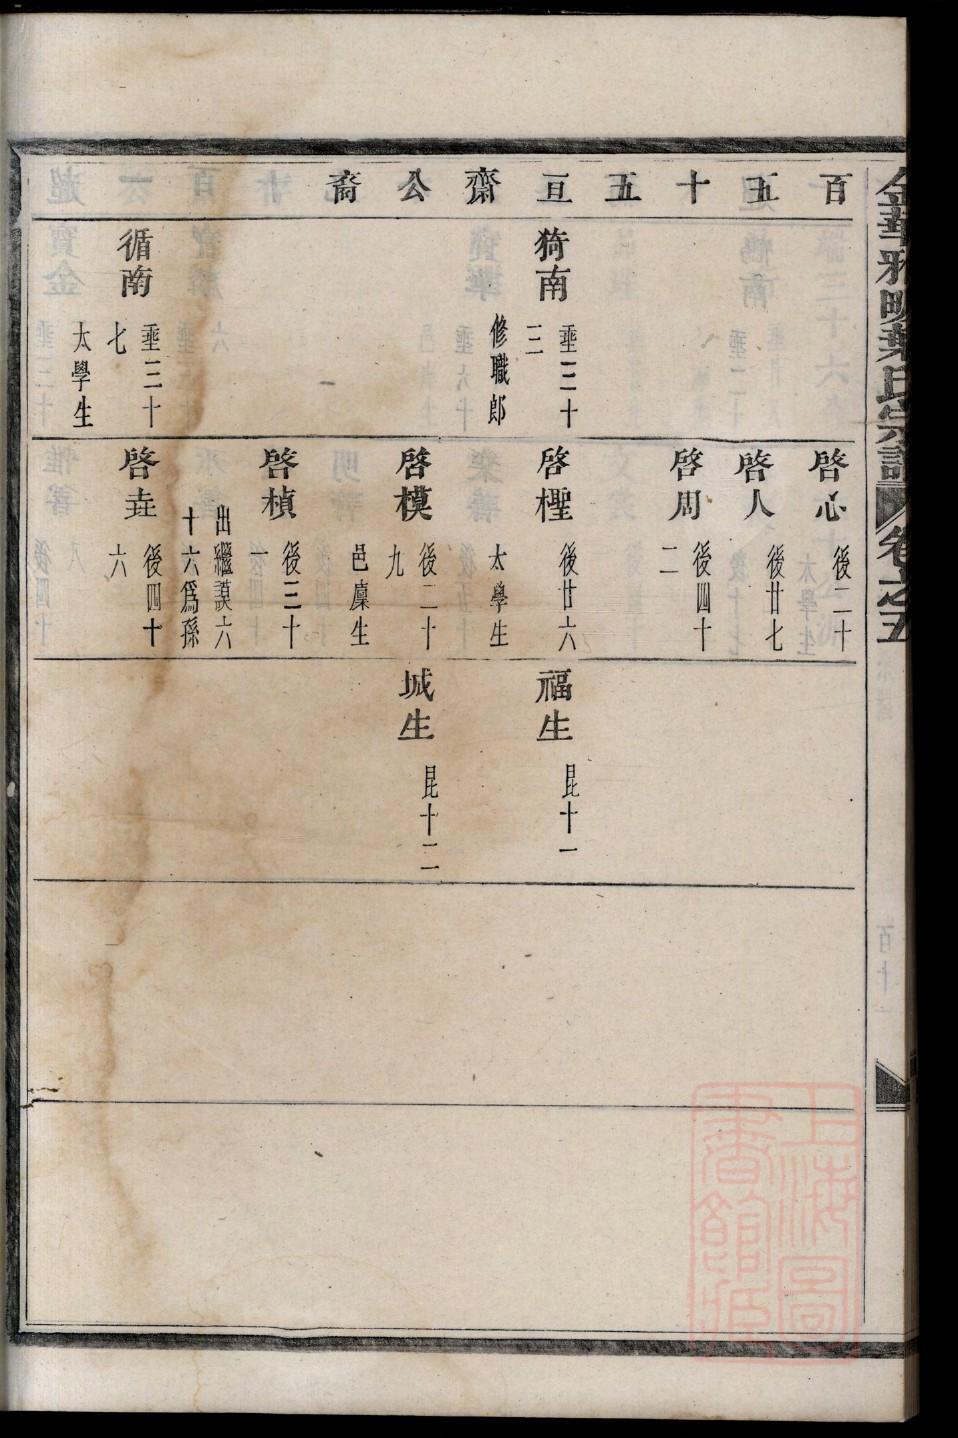 金華雅畈葉氏宗譜 卷之五
百五十五亘齋公裔
猗南 垂三十三 修職郎
循南 垂三十七 太學生
啓心 後二十
啓人 後廿七
啓周 後四十二
啓檉 後廿六 太學生
啓模 後二十九 邑廩生
啓楨 後三十一 出繼謨六十六爲孫
啓垚 後四十六
福生 昆十一
城生 昆十二
上海圖書館藏